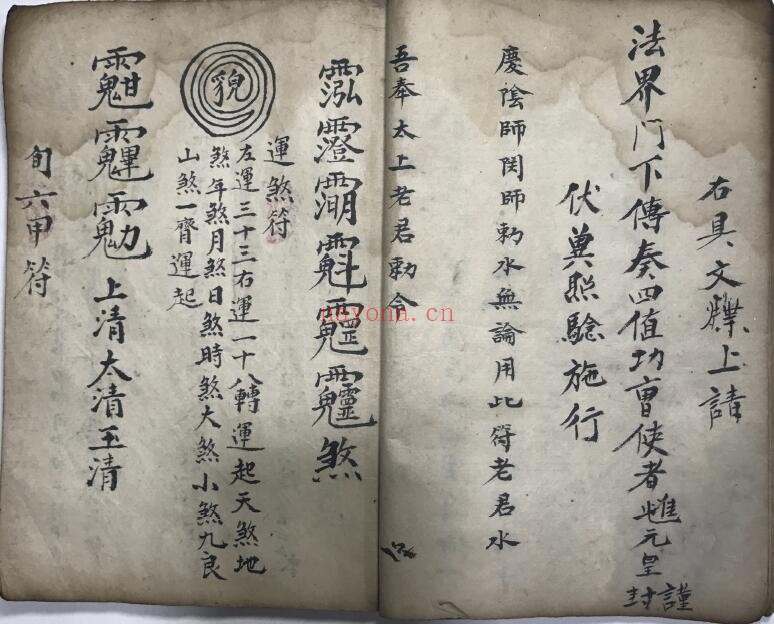 右具文牒上請
法界門下傳奏四值功曹使者
元皇
謹封
伏冀照驗施行
慶陰師関師勅水無論用此符老君水
吾奉太上老君勅令
煞
運煞符
左運三十三右運一十八轉運起天煞地
煞年煞月煞日煞時煞大煞小煞九良
山煞一齊運起
貌
上清太清玉清
旬六甲符
nayona.cn